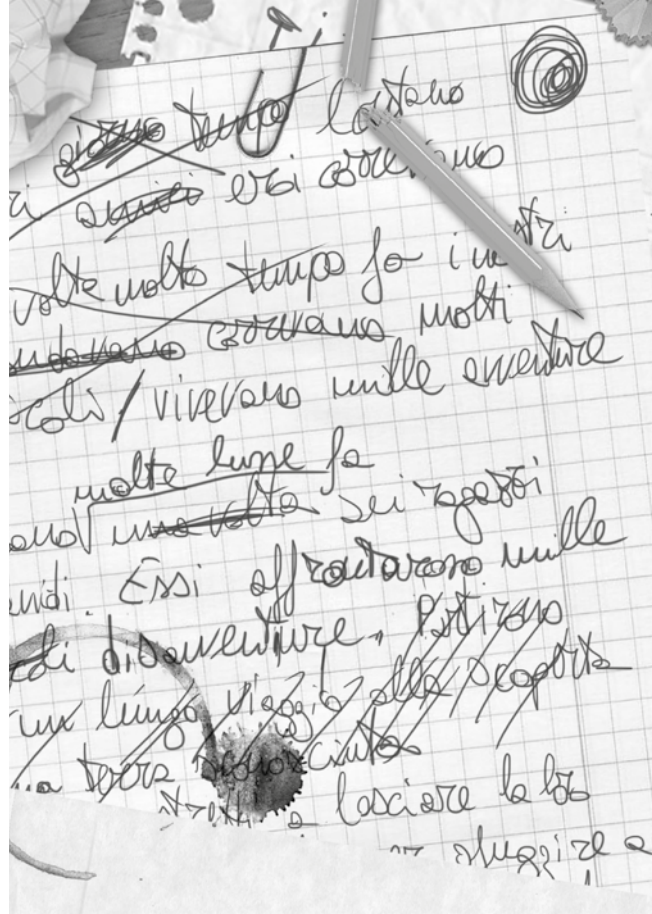 giorno tempo lontano
amici eroi correvano
volte molto tempo fa in
andavano correvano molti
coli / vivevano mille avventure
molte lune fa
una volta sei ragazzi
Essi affrontarono mille
di disavventure. Partirono
un lungo viaggio alla scoperta
terra sconosciuta
a lasciare la loro
sfuggire a